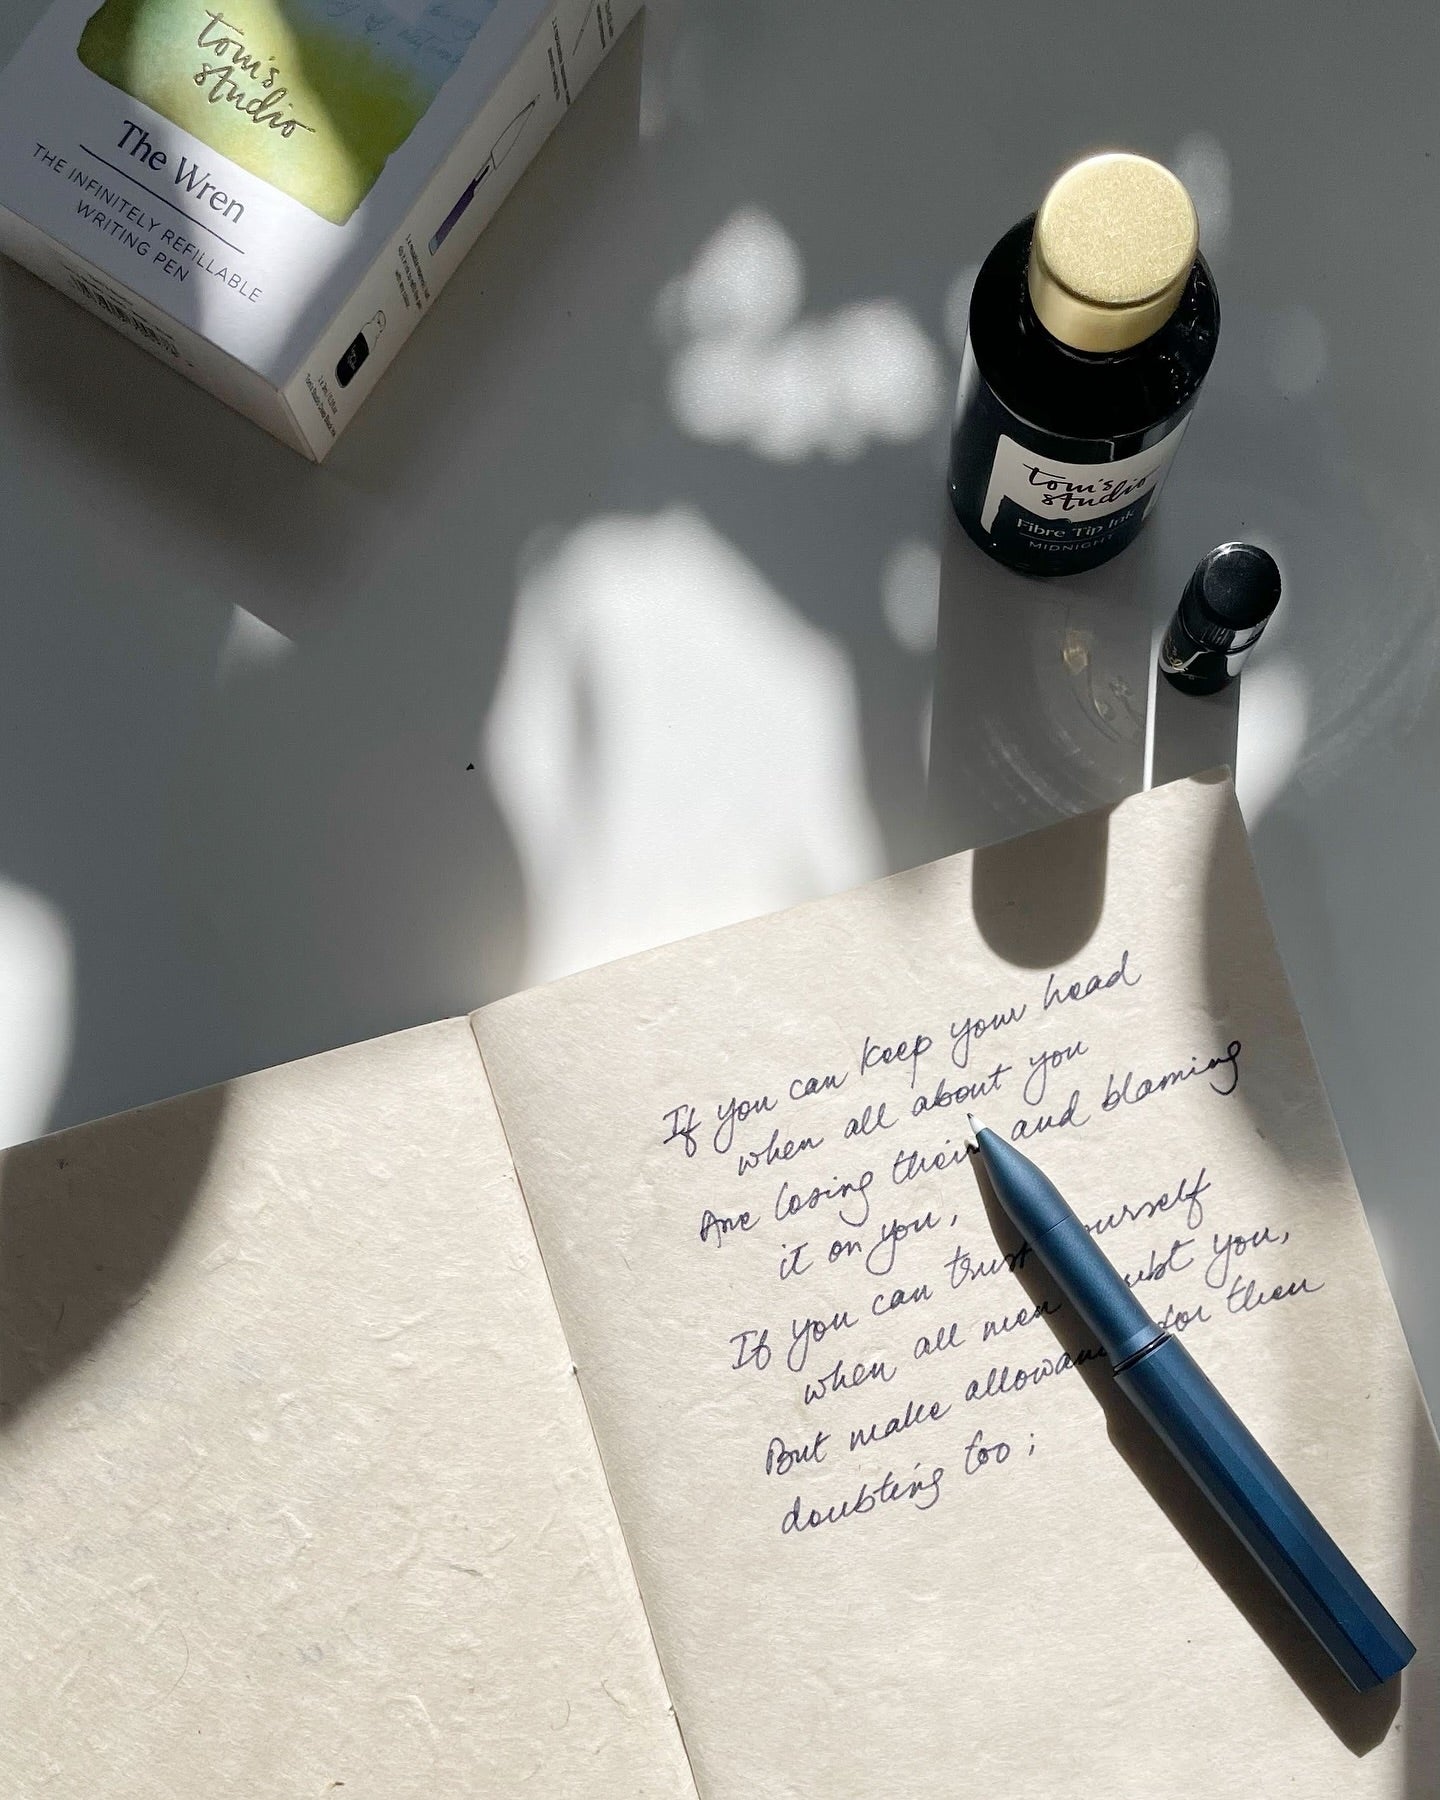 tom's
studio
The Wren
THE INFINITELY REFILLABLE
WRITING PEN
tom's
studio
Fibre Tip Ink
MIDNIGHT
If you can keep your head
when all about you
Are losing theirs and blaming
it on you,
If you can trust ourself
when all men ubt you,
But make allowan for their
doubting too;